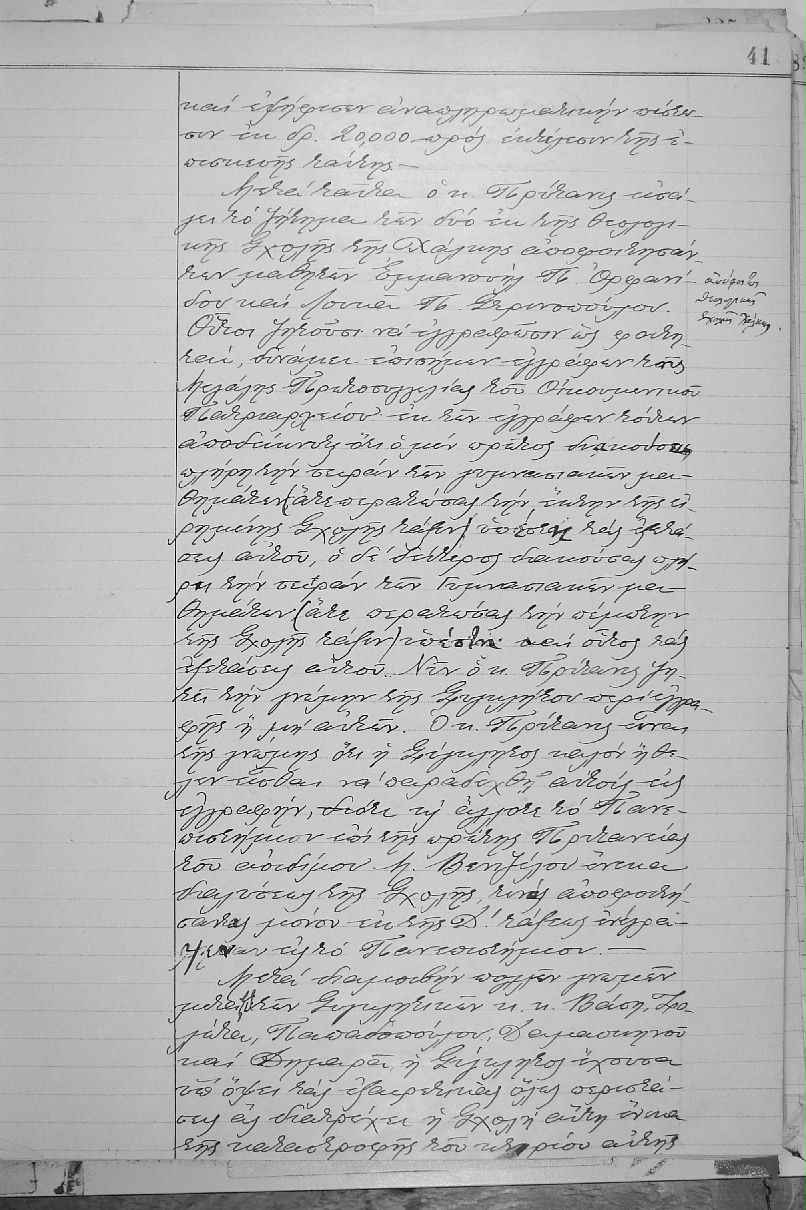 41
καὶ ἐψήφισεν ἀναπληρωματικὴν πίστω-
σιν ἐκ δρ. 20,000 πρὸς ἐκτέλεσιν τῆς ἐ-
πισκευῆς ταύτης.—
Μετὰ ταῦτα ὁ κ. Πρύτανις εἰσά-
γει τὸ ζήτημα τῶν δύο ἐκ τῆς Θεολογι-
κῆς Σχολῆς τῆς Χάλκης ἀποφοιτησάν-
των μαθητῶν Ἐμμανουὴλ Π. Ὀρφανί-
δου καὶ Λουκᾶ Π.
Οὗτοι ζητοῦσι νὰ ἐγγραφῶσιν ὡς φοιτη-
ταί, δυνάμει ἐπισήμων ἐγγράφων τῆς
Μεγάλης Πρωτοσυγγελίας τοῦ Οἰκουμενικοῦ
Πατριαρχείου· ἐκ τῶν ἐγγράφων τούτων
ἀποδείκνυται ὅτι ὁ μὲν πρῶτος διακούσας
πλήρη τὴν σειρὰν τῶν γυμνασιακῶν μα-
θημάτων (ἅτε περατώσας τὴν ἕκτην τῆς εἰ-
ρημένης Σχολῆς τάξιν) ὑπέστη τὰς ἐξετά-
σεις αὐτοῦ, ὁ δὲ δεύτερος διακούσας πλή-
ρη τὴν σειρὰν τῶν Γυμνασιακῶν μα-
θημάτων (ἅτε περατώσας τὴν πέμπτην
τῆς Σχολῆς τάξιν) ὑπέστη καὶ οὗτος τὰς
ἐξετάσεις αὐτοῦ. Νῦν ὁ κ. Πρύτανις ζη-
τεῖ τὴν γνώμην τῆς Συγκλήτου περὶ ἐγγρα-
φῆς ἢ μὴ αὐτῶν. Ὁ κ. Πρύτανις εἶναι
τῆς γνώμης ὅτι ἡ Σύγκλητος καλὸν ἤθε-
λεν εἶσθαι νὰ παραδεχθῇ αὐτοὺς εἰς
ἐγγραφήν, διότι καὶ ἄλλοτε τὸ Πανε-
πιστήμιον ἐπὶ τῆς πρώτης Πρυτανείας
τοῦ ἀοιδίμου Μ. Βενιζέλου ἕνεκα
διαλύσεως τῆς Σχολῆς, τινὰς ἀποφοιτή-
σαντας μόνον ἐκ τῆς Δ΄. τάξεως ἐνέγρα-
ψεν εἰς τὸ Πανεπιστήμιον.—
Μετὰ διαμοιβὴν πολλῶν γνωμῶν
μεταξὺ τῶν Συγκλητικῶν κ. κ. Βάση,
Παπαδοπούλου, Δαμασκηνοῦ
καὶ Δημαρᾶ, ἡ Σύγκλητος ἔχουσα
ὑπ' ὄψει τὰς ἐξαιρετικὰς ὅλως περιστά-
σεις ἃς διατρέχει ἡ Σχολὴ αὕτη ἕνεκα
τῆς καταστροφῆς τοῦ κτηρίου αὐτῆς
ἀπόφοιτοι
Θεολογικῆς
Σχολῆς Χάλκης.